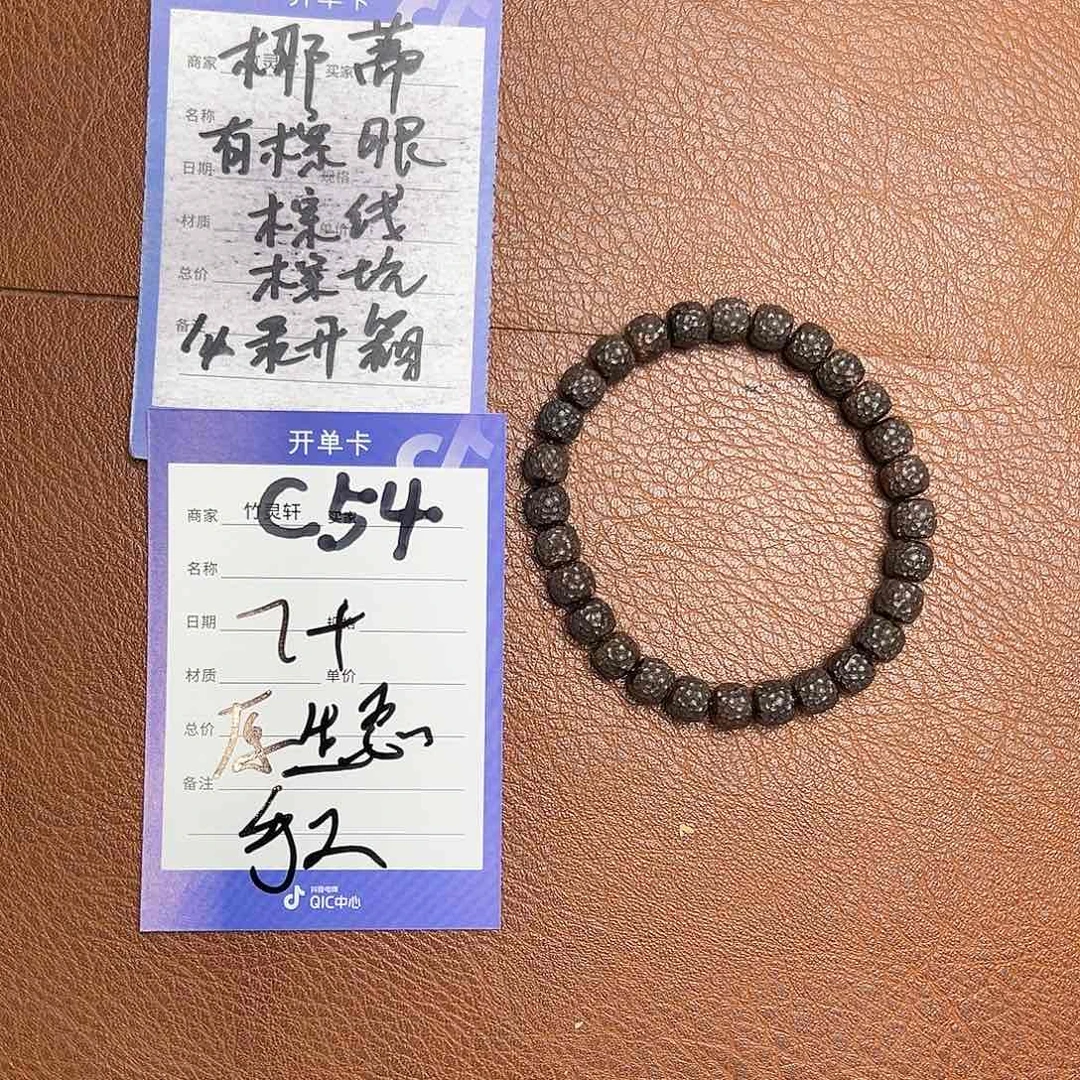 开单卡
椰蒂
商家 买家
名称
有棕眼
日期 规格
棕线
材质 单价
棕坑
总价
开
开单卡
C54
商家 竹灵轩 买家
名称
日期 规格
7十
材质 单价
原生态
总价
备注
手工
抖音电商
QIC中心